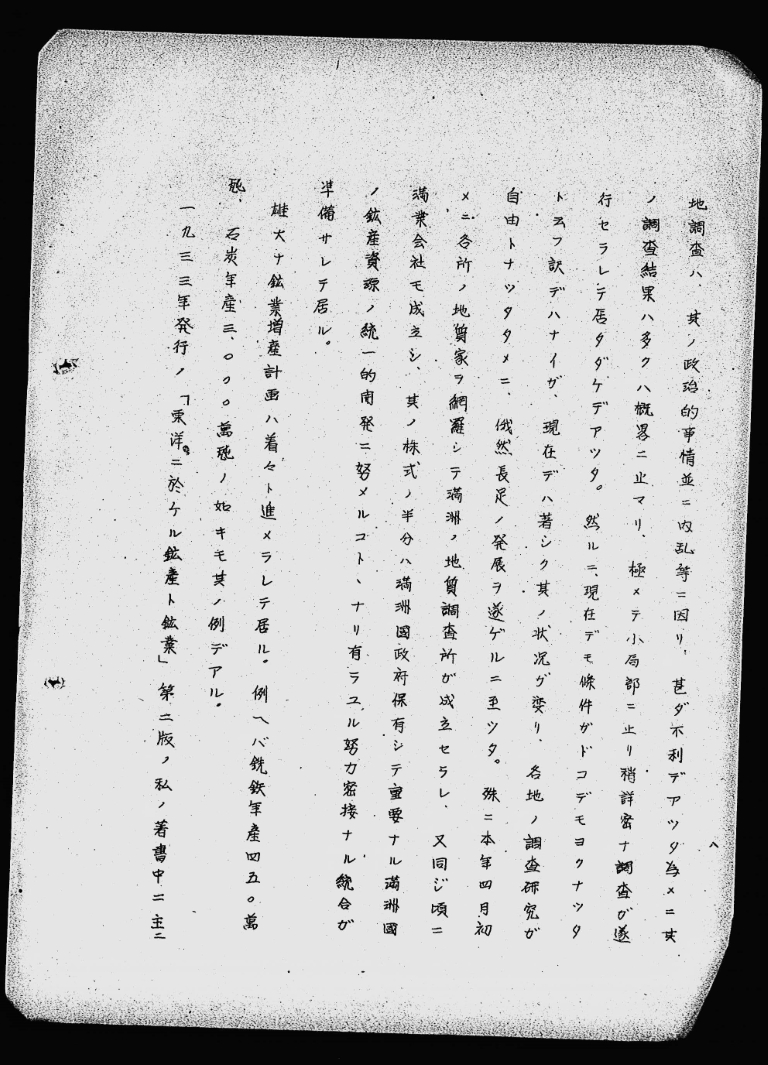 地調査ハ、其ノ政治的事情並ニ内乱等ニ因リ、甚ダ不利デアツタ為メニ其
ノ調査結果ハ多クハ概畧ニ止マリ、極メテ小局部ニ止リ稍詳密ナ調査ガ遂
行セラレテ居タダケデアツタ。然ルニ、現在デモ條件ガドコデモヨクナツタ
ト云フ訳デハナイガ、現在デハ著シク其ノ状況ガ変リ、各地ノ調査研究ガ
自由トナツタタメニ、俄然長足ノ発展ヲ遂ゲルニ至ツタ。殊ニ本年四月初
メニ各所ノ地質家ヲ網羅シテ満洲ノ地質調査所ガ成立セラレ、又同ジ頃ニ
満業会社モ成立シ、其ノ株式ノ半分ハ満洲國政府保有シテ重要ナル満洲國
ノ鉱産資源ノ統一的開発ニ努メルコトヽナリ有ラユル努力密接ナル統合ガ
準備サレテ居ル。
雄大ナ鉱業増産計画ハ着々ト進メラレテ居ル。例ヘバ銑鉄年産四五〇萬
瓲、石炭年産三、〇〇〇萬瓲ノ如キモ其ノ例デアル。
一九三三年発行ノ「東洋ニ於ケル鉱産ト鉱業」第二版ノ私ノ著書中ニ主ニ